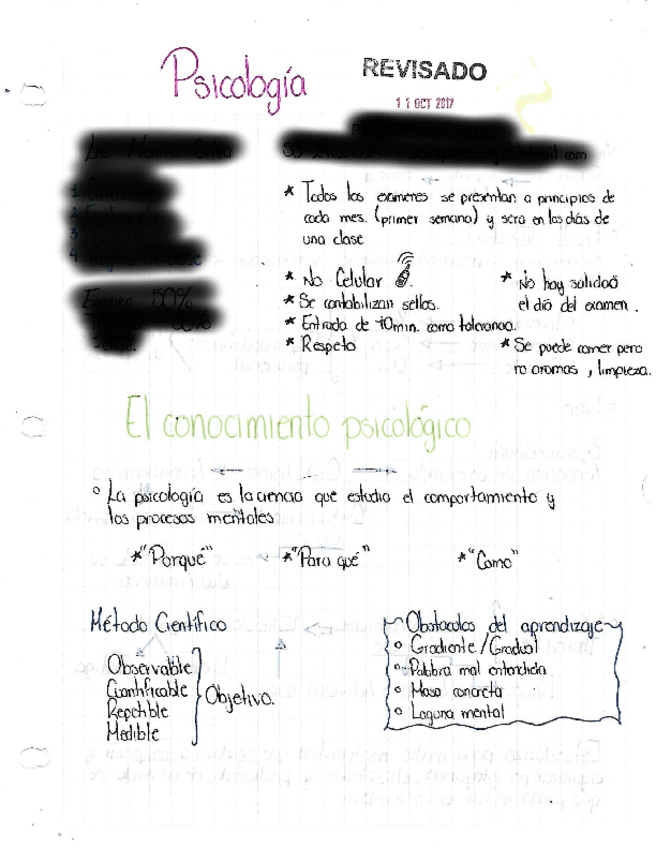 Psicología
REVISADO
11 OCT 2017
* Todos los examenes se presentan a principios de
cada mes. (primer semana) y sera en los días de
una clase
* No Celular
* Se contabilizan sellos.
* Entrada de 10min. como tolerancia.
* Respeto
* No hay salidas
el día del examen.
* Se puede comer pero
no aromas, limpieza.
Examen 50%
El conocimiento psicológico
° La psicología es la ciencia que estudia el comportamiento y
los procesos mentales
* "Porqué" * "Para qué" * "Como"
Método Científico
Observable
Cuantificable
Repetible
Medible
Objetivo.
Obstaculos del aprendizaje
° Gradiente/Gradual
° Palabra mal entendida
° Masa concreta
° Laguna mental